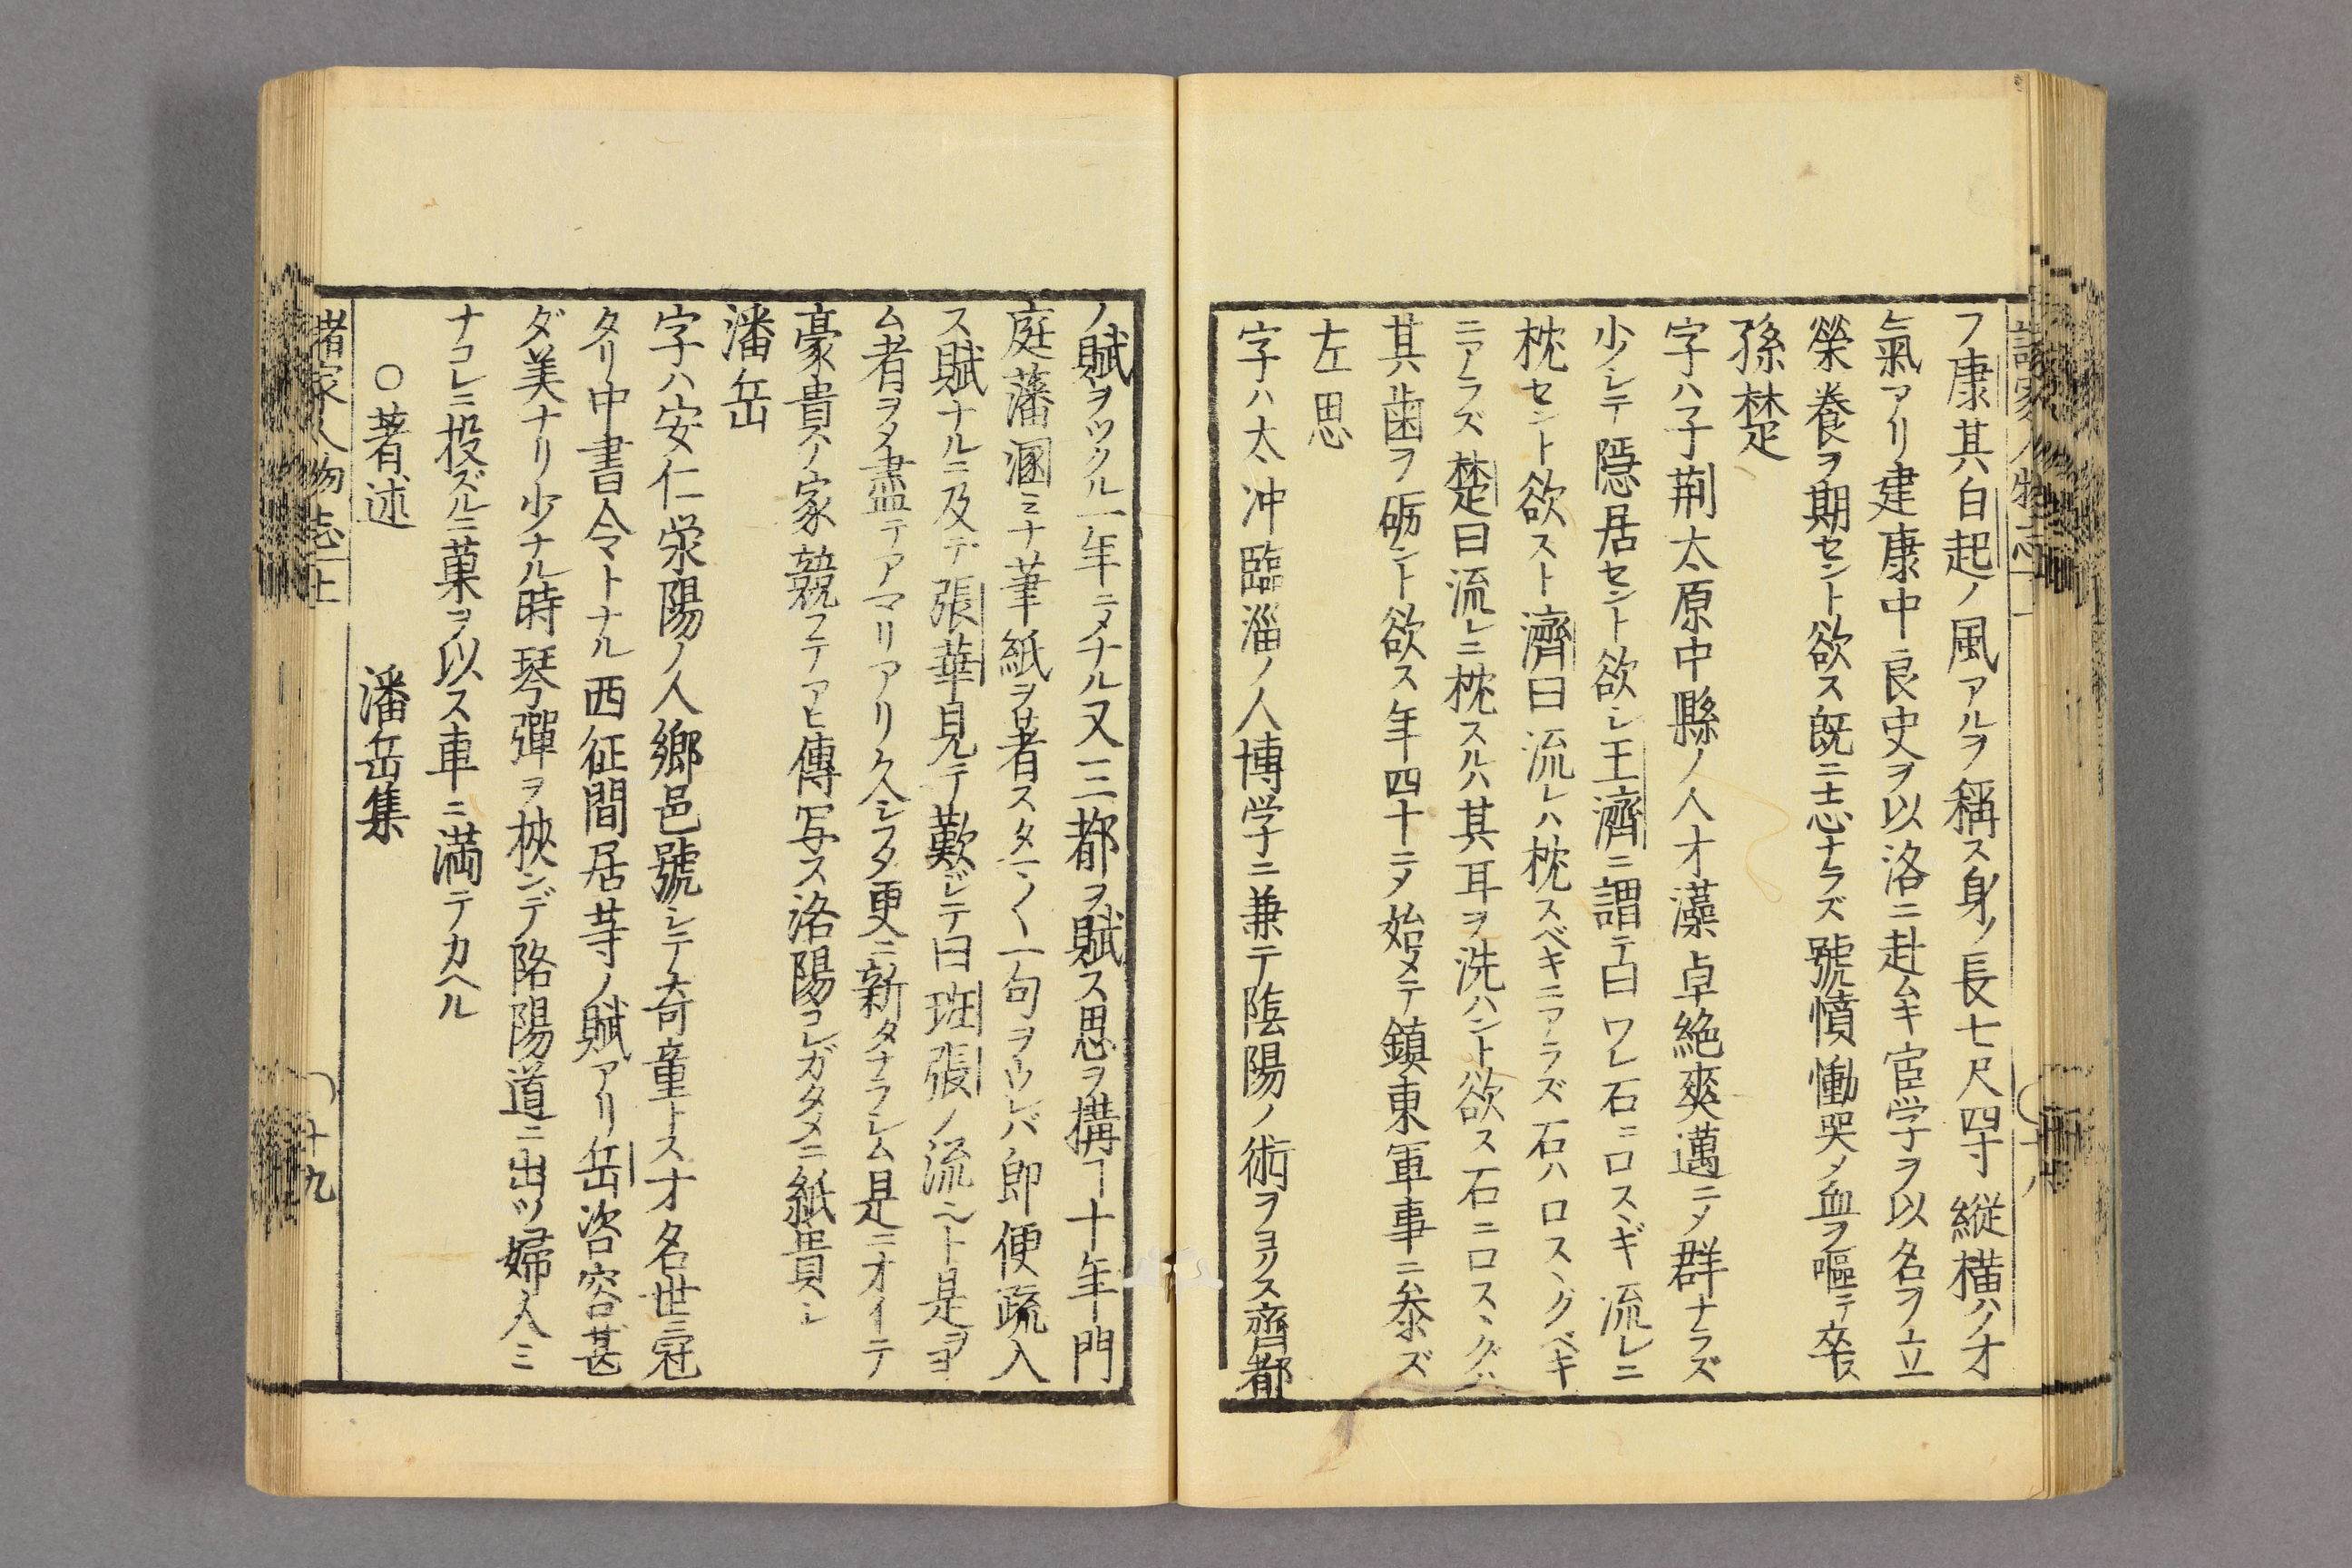 諸家人物志上
フ康其白起ノ風アルヲ稱ス身ノ長七尺四寸縦横ハノオ
氣アリ建康中良史ヲ以洛ニ赴ムキ宦学ヲ以名ヲ立
榮養ヲ期セント欲ス既ニ志ナラズ號憤慟哭〆血ヲ嘔テ卒ス
孫楚
字ハ子荊太原中縣ノ人才藻卓絶爽邁ニ〆群ナラズ
少シテ隠居セント欲シ王濟ニ謂テ曰ワレ石ニ口スヽギ流レニ
枕セント欲スト濟曰流レハ枕スベキニアラズ石ハ口スヽグベキ
ニアラズ楚曰流レニ枕スルハ其耳ヲ洗ハント欲ス石ニ口スヽグハ
其歯ヲ砺ント欲ス年四十ニ〆始メテ鎮東軍事ニ参ズ
左思
字ハ太冲臨淄ノ人博学ニ兼テ隂陽ノ術ヲヨクス齊都
ノ賦ヲツクル一年ニ〆ナル又三都ヲ賦ス思ヲ構ヿ十年門
庭藩溷ミナ筆紙ヲ著スタマ〱一句ヲウレバ即便疏入
ス賦ナルニ及デ張華見テ歎ジテ曰班張ノ流ヘト是ヲヨ
ム者ヲ〆盡テアマリアリ久シフ〆更ニ新タナラシム是ニオイテ
豪貴ノ家競フテアヒ傳写ス洛陽コレガタメニ紙貴シ
潘岳
字ハ安仁荥陽ノ人郷邑號シテ奇童トス才名世ニ冠
タリ中書令トナル西征間居等ノ賦アリ岳姿容甚
ダ美ナリ少ナル時琴彈ヲ挾ンデ陥陽道ニ出ヅ婦人ミ
ナコレニ投ズルニ菓ヲ以ス車ニ満テカヘル
○著述　潘岳集
諸家人物志上　十九